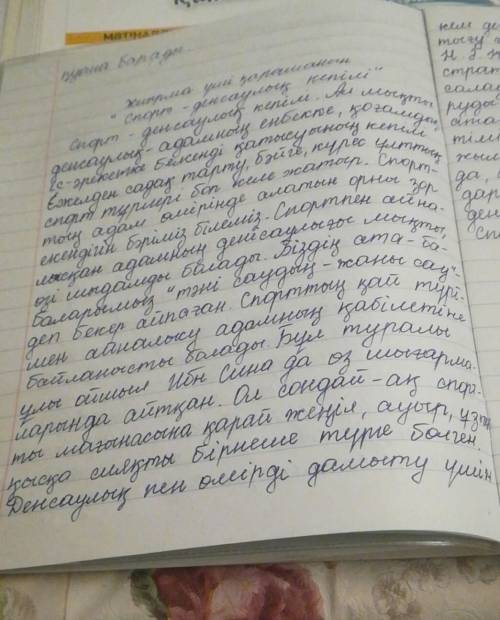 МӘТІНАЛД
пұсына барады.
Жиырма үші қарашаның
"Спорт - денсаулық кепілі"
Спорт - денсаулық кепілі. Ал мықты
денсаулық - адамның еңбекке, қоғамдық
іс-әрекетке белсенді қатысуының кепілі
Ежелден садақ тарту, бәйге, күрес ұлттық
спорт түрлері боп келе жатыр. Спорт-
тың адам өмірінде алатын орны зор
екендігін бәріміз білеміз. Спортпен айна-
лысқан адамның денсаулығы мықты,
өзі шыдамды болады. Біздің ата-ба-
баларымыз "тәні саудың - жаны сау"
деп бекер айтпаған. Спорттың қай түрі-
мен айналысу адамның қабілетіне
байланысты болады. Бұл туралы
ұлы ойшыл Ибн Сина да өз шығарма-
ларында айтқан. Ол сондай-ақ спор-
ты мағынасына қарай жеңіл, ауыр, ұзақ
қысқа сияқты бірнеше түрге бөлген.
Денсаулық пен өмірді дамыту үшін
кем
тығу
Н.
страт
салах
руды
ата
тілі
жыл
да,
дар
ден
Сп